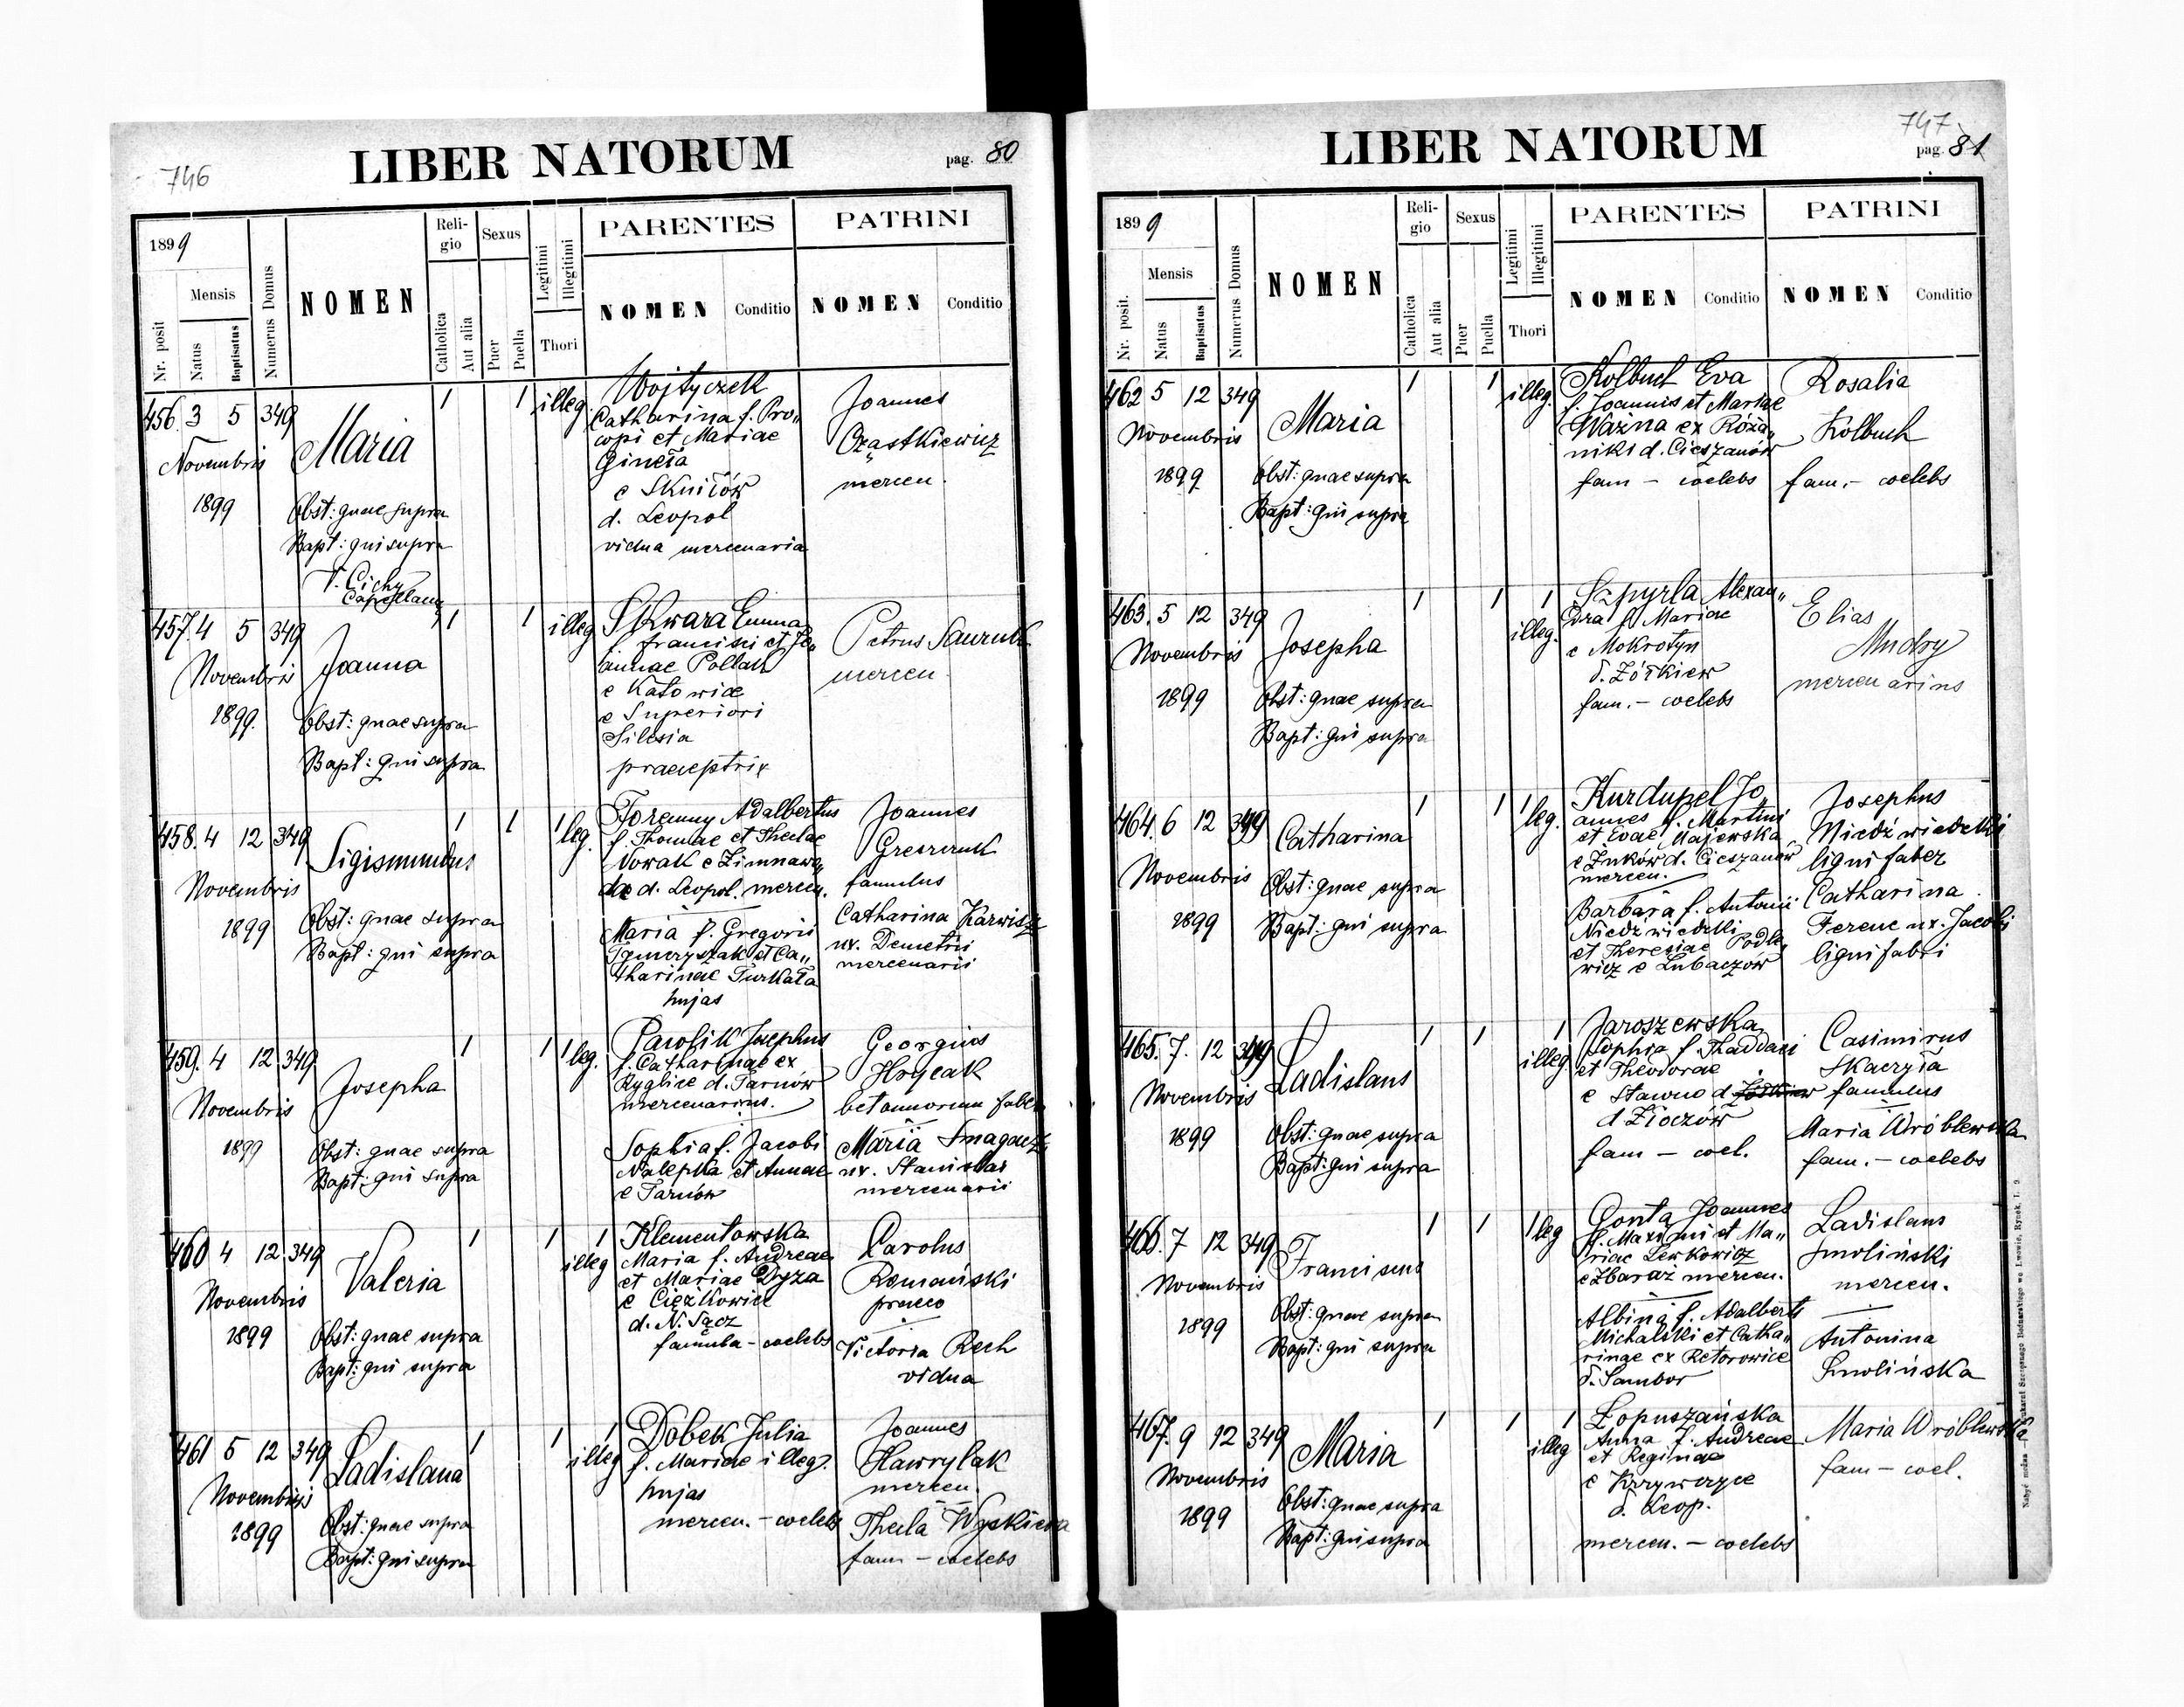 746
LIBER NATORUM
pag. 80
1899
Nr. posit
Mensis
Natus
Baptisatus
Numerus Domus
NOMEN
Reli-
gio
Catholica
Aut alia
Sexus
Puer
Puella
Legitimi
Illegitimi
Thori
PARENTES
NOMEN
Conditio
PATRINI
NOMEN
Conditio
456. 3 5 349
Novembris
1899
Maria
Obst: quae supra
Bapt: qui supra
T. Cichy
Capellanus
1 1 illeg.
Wojtyczek
Catharina f. Pro„
copi et Mariae
Gineła
e Skniłów
d. Leopol
vidua mercenaria
Joannes
Cząstkiewicz
mercen.
457. 4 5 349
Novembris
1899.
Joanna
Obst: quae supra
Bapt: qui supra
1 1 illeg
Skwara Emma
f. Francisci et Jo„
annae Pollak
e Katowice
e Superiori
Silesia
praeceptrix
Petrus Sauruk
mercen
458. 4 12 349
Novembris
1899
Sigismundus
Obst: quae supra
Bapt: qui supra
1 1 1 leg.
Foremny Adalbertus
f. Thomae et Theclae
Nowak e Zimnawo„
dae d. Leopol. mercen.
Maria f. Gregorii
et Ca„
tharinae Turkała
hujas
Joannes
famulus
Catharina Karwisz
ux. Demetrii
mercenarii
459. 4 12 349
Novembris
1899
Josepha
Obst: quae supra
Bapt: qui supra
1 1 1 leg.
Pawlik Josephus
f. Catharinae ex
Ryglice d. Tarnów
mercenarius.
Sophia f. Jacobi
Nalepka et Annae
e Tarnów
Georgius
Hrycak
betonnorum faber
Maria Smagacz
ux. Stanislai
mercenarii
460 4 12 349
Novembris
1899
Valeria
Obst: quae supra
Bapt: qui supra
1 1 1 illeg
Klementowska
Maria f. Andreae
et Mariae Dyza
e Ciężkowice
d. N. Sącz
famula - coelebs
Carolus
Romański
praeco
Victoria Rech
vidua
461 5 12 349
Novembris
1899
Ladislaua
Obst: quae supra
Bapt: qui supra
1 1 1 illeg
Dobek Julia
f. Mariae illeg.
hujas
mercen. - coelebs
Joannes
Hawrylak
mercen.
Thecla
fam - coelebs
747
LIBER NATORUM
pag. 81
1899
Nr. posit.
Mensis
Natus
Baptisatus
Numerus Domus
NOMEN
Reli-
gio
Catholica
Aut alia
Sexus
Puer
Puella
Legitimi
Illegitimi
Thori
PARENTES
NOMEN
Conditio
PATRINI
NOMEN
Conditio
462 5 12 349
Novembris
1899
Maria
Obst: quae supra
Bapt: qui supra
1 1 illeg.
Kolbuch Eva
f. Joannis et Mariae
Ważna ex Róża„
niki d. Cieszanów
fam - coelebs
Rosalia
Kolbuch
fam. - coelebs
463. 5 12 349
Novembris
1899
Josepha
Obst: quae supra
Bapt: qui supra
1 1 1 illeg.
Szpyrla Alexan„
dra f. Mariae
e Mokrotyn
d. Żółkiew
fam. - coelebs
Elias
Mudry
mercenarius
464. 6 12 349
Novembris
1899
Catharina
Obst: quae supra
Bapt: qui supra
1 1 1 leg.
Kurdupel Jo
annes f. Martini
et Evae Majewska
e Żuków d. Cieszanów
mercen.
Barbara f. Antonii
Niedźwiedzki
et Theresiae Podle„
wicz e Lubaczów
Josephus
Niedźwiedzki
ligni faber
Catharina
Ferenc ux. Jacobi
ligni fabri
465. 7. 12 349
Novembris
1899
Ladislaus
Obst: quae supra
Bapt: qui supra
1 1 1 illeg
Jaroszewska
Sophia f. Thaddaei
et Theodorae
e Stawno d. Żółkiew
d Złoczów
fam - coel.
Casimirus
Skaczyła
famulus
Maria Wróblewska
fam. - coelebs
466. 7 12 349
Novembris
1899
Franciscus
Obst: quae supra
Bapt: qui supra
1 1 1 leg
Gonta Joannes
f. Maximi et Ma„
riae Lewkowicz
e Zbaraż mercen.
Albina f. Adalberti
Michalski et Catha„
rinae ex Retorowice
d. Sambor
Ladislaus
Smoliński
mercen.
Antonina
Smolińska
467. 9 12 349
Novembris
1899
Maria
Obst: quae supra
Bapt: qui supra
1 1 1 illeg
Łopuszańska
Anna f. Andreae
et Reginae
e Krzywczyce
d. Leop.
mercen. - coelebs
Maria Wróblewska
fam - coel.